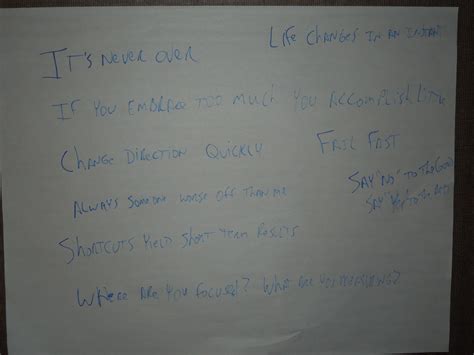 Life Changes In An Instant
It's Never Over
If You Embrace Too Much You Accomplish Little
Change Direction Quickly
Fail Fast
Always Someone Worse Off Than Me
Say "No" To The Good
Say "Yes" To The Best
Shortcuts Yield Short Term Results
Where Are You Focused? What Are You Pursuing?